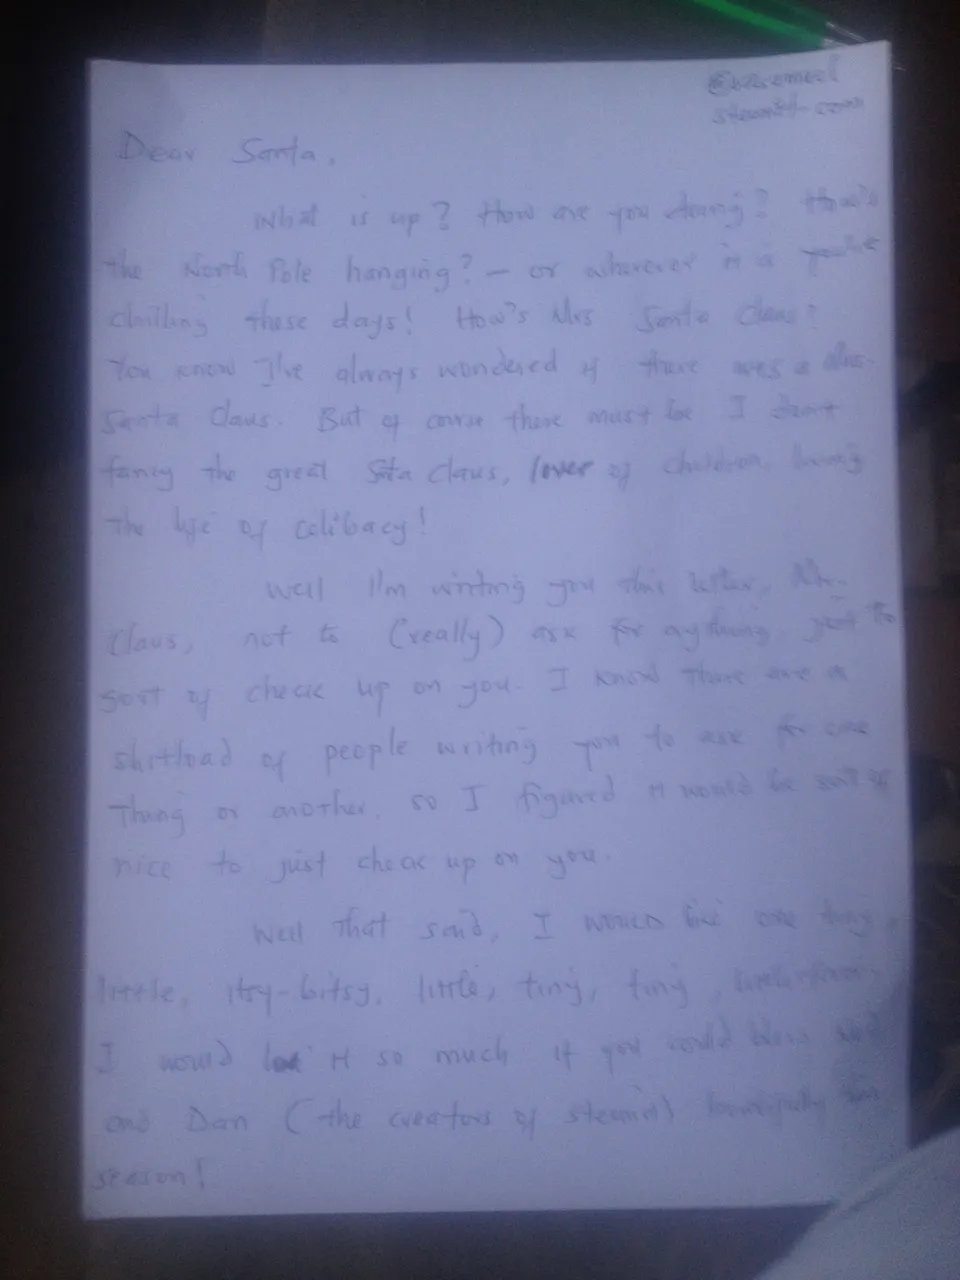 steemit.com
Dear Santa,
What is up? How are you doing? How's
the North Pole hanging? – or wherever it is you're
chilling these days! How's Mrs Santa Claus?
You know I've always wondered if there was a Mrs.
Santa Claus. But of course there must be I don't
fancy the great Sata Claus, lover of children, living
the life of celibacy!
Well I'm writing you this letter, Mr.
Claus, not to (really) ask for anything, just to
sort of check up on you. I know there are a
shitload of people writing you to ask for one
thing or another, so I figured it would be sort of
nice to just check up on you.
Well that said, I would like one thing,
little, itsy-bitsy, little, tiny, tiny,
I would love it so much if you could bless
and Dan (the creators of steemit) bountifully this
season!